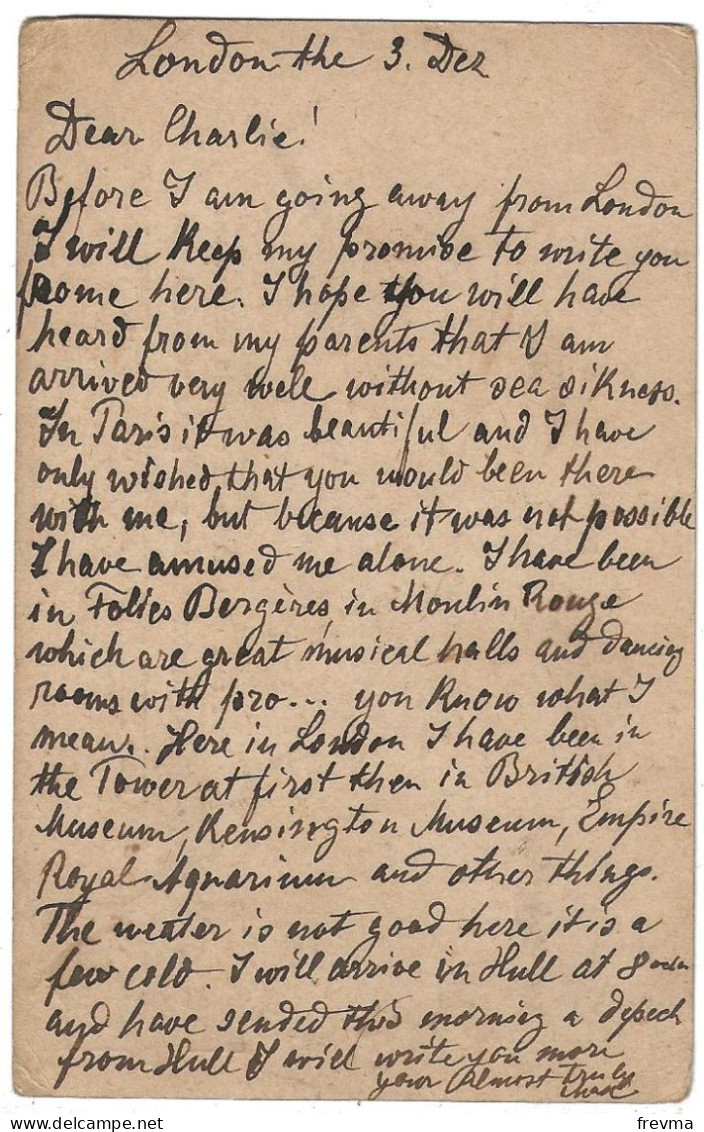 London the 3. Dez
Dear Charlie!
Before I am going away from London
I will keep my promise to write you
frome here. I hope you will have
heard from my parents that I am
arrived very well without sea sikness.
In Paris it was beautiful and I have
only wished that you would been there
with me, but because it was not possible
I have amused me alone. I have been
in Folies Bergères, in Moulin Rouge
which are great musical halls and dancing
rooms with pro... you know what I
mean. Here in London I have been in
the Tower at first then in British
Museum, Kensington Museum, Empire
Royal Aquarium and other things.
The wetter is not good here it is a
few cold. I will arrive in Hull at 8
and have sended this morning a depech
from Hull I will write you more
your Almost truly
frevma